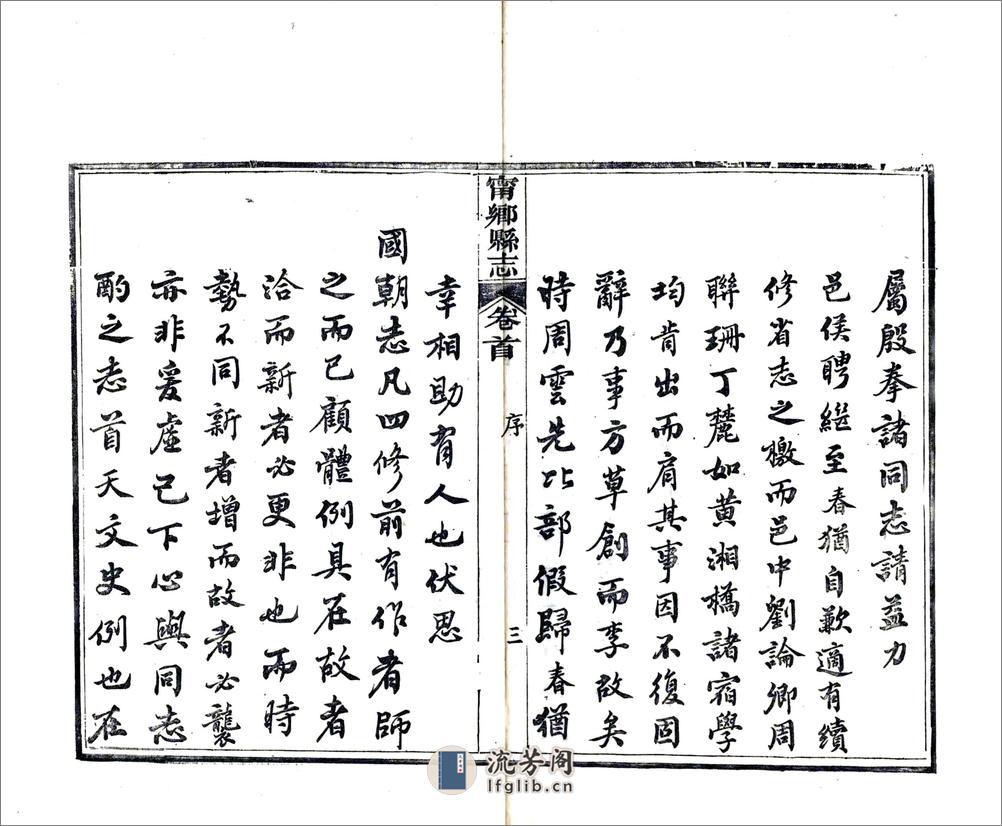 屬殷拳諸同志請益力
邑侯聘繼至春猶自歉適有續
修省志之檄而邑中劉論卿周
聯珊丁麓如黃湘橋諸宿學
均肯出而肩其事因不復固
辭乃事方草創而李故矣
時周雲先比部假歸春猶
甯鄉縣志
卷首
序
三
幸相助有人也伏思
國朝志凡四修前有作者師
之而已顧體例具在故者
洽而新者必更非也而時
勢不同新者增而故者必襲
亦非爰虛己下心與同志
酌之志首天文史例也在
流芳阁
lfglib.cn